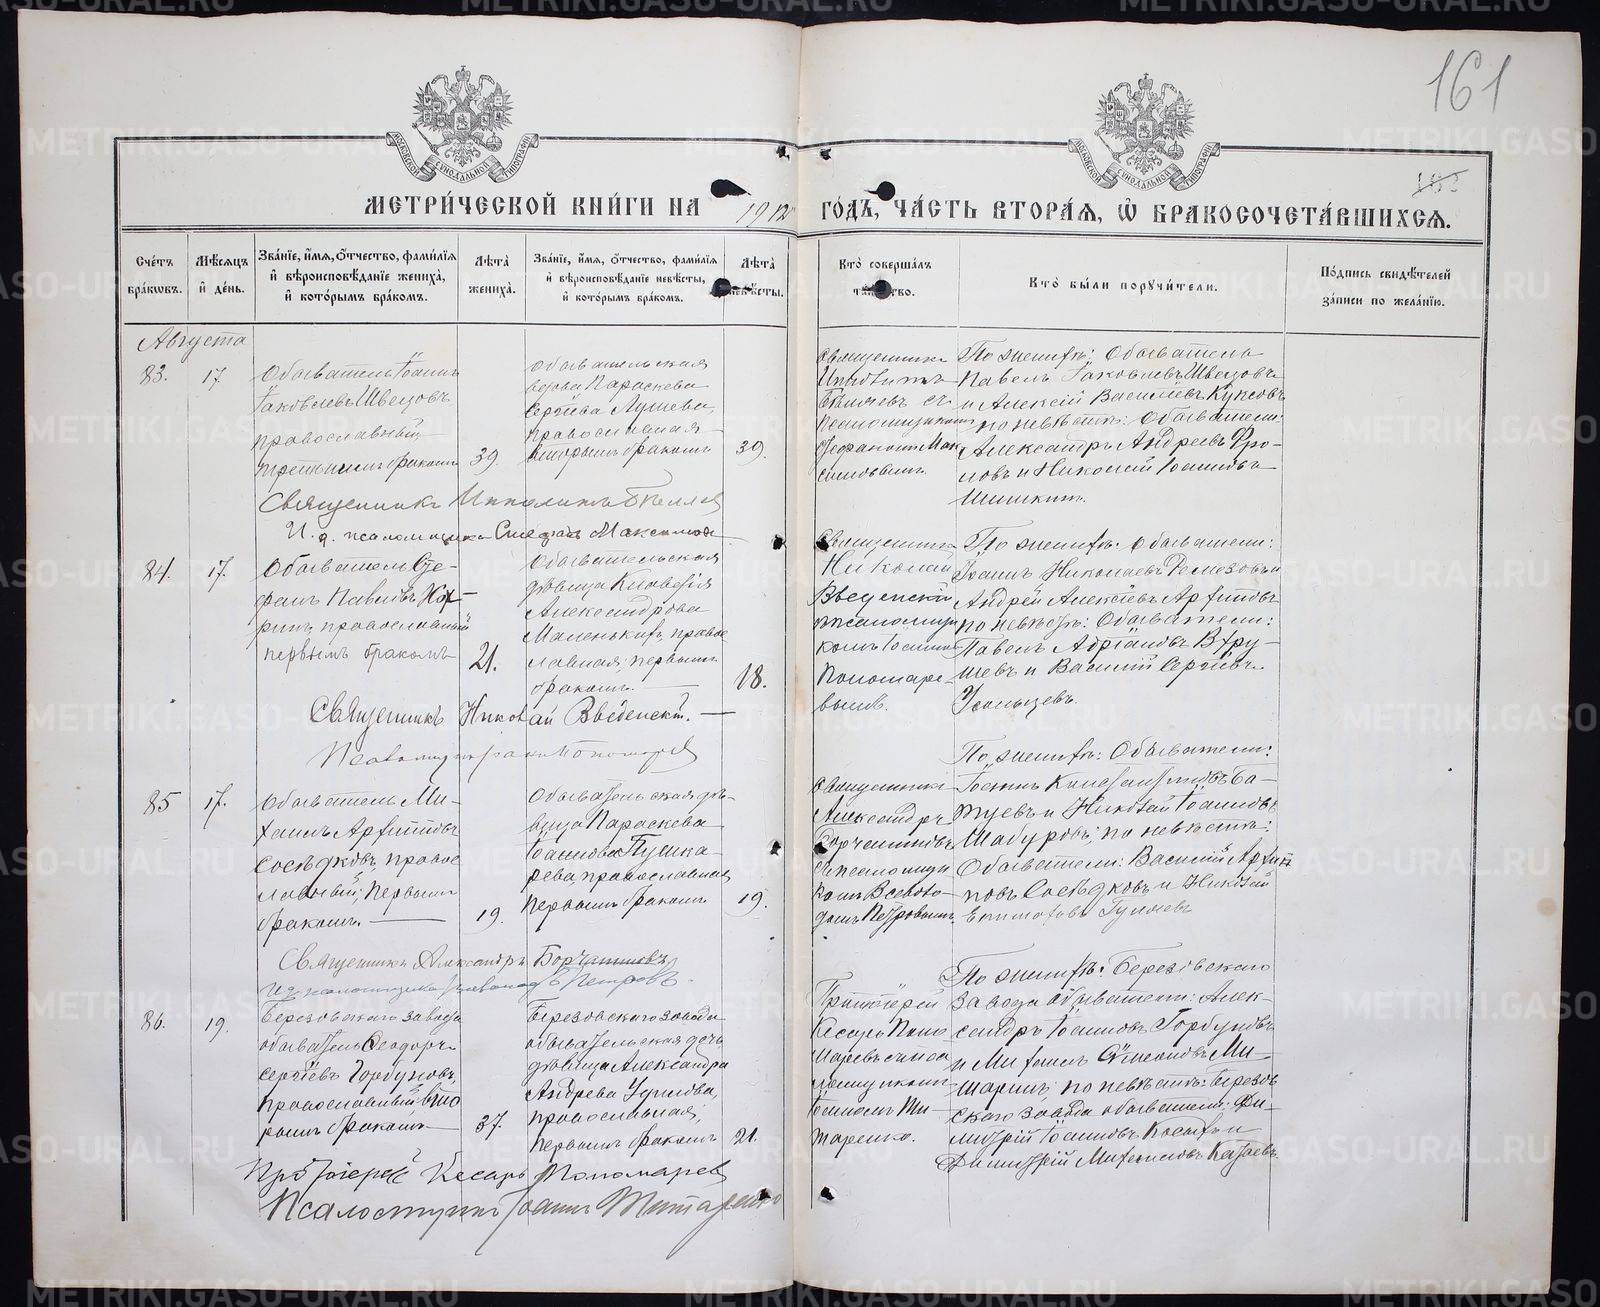 161
МЕТРИ́ЧЕСКОЙ КНИ́ГИ НА 1912 ГО́ДЪ, ЧА́СТЬ ВТОРА́Я, Ѽ БРАКОСОЧЕТА́ВШИХСЯ.
Сче́тъ бра́ковъ.
Мѣ́сяцъ и де́нь.
Зва́нїе, и́мя, о́тчество, фами́лїя и вѣроисповѣ́данїе жениха́, и кото́рымъ бра́комъ.
Лѣта̀ жениха̀.
Зва́нїе, и́мя, о́тчество, фами́лїя и вѣроисповѣ́данїе невѣ́сты, и кото́рымъ бра́комъ.
Лѣта̀ невѣ́сты.
Кто̀ соверша́лъ таинство.
Кто̀ бы́ли поручи́тели.
По́дпись свидѣ́телей за́писи по жела́нїю.
Августа
83.
17
Обыватель Іоаннъ
Іаковлевъ Швецовъ
православный
третьимъ бракомъ
39.
Обывательская
вдова Параскева
Сергіева
православная
вторымъ бракомъ
39.
Священникъ
Ипполитъ
съ
псаломщикомъ
По женихѣ: Обыватель
Павелъ Іаковлевъ Швецовъ
и Алексій Васильевъ Купсовъ
по невѣстѣ: Обыватели:
Александръ Андреевъ Фро-
ловъ и Николай Іоанновъ
Шишкинъ.
Священникъ Ипполитъ
И. д. псаломщика Максимовъ
84.
17.
Обыватель Сте-
фанъ Павловъ
православный
первымъ бракомъ
21.
Обывательская
дѣвица Клавдія
Александрова
Маленькихъ, правос
лавная первымъ
бракомъ.
18.
Священникъ
Николай
Введенскій
псаломщи
комъ Іоанномъ
Пономаре-
вымъ.
По женихѣ: Обыватели:
Іоаннъ Николаевъ Ремезовъ и
Андрей Алексіевъ Архиповъ
по невѣстѣ: Обыватели:
Павелъ Адріановъ Втру-
шевъ и Василій Сергіевъ
Усольцевъ.
Священникъ Николай Введенскій.
Псаломщикъ Іоаннъ Пономаревъ
85
17.
Обыватель Ми-
хаилъ Архиповъ
Сосѣдковъ, правос
лавный; первымъ
бракомъ.
19.
Обывательская дѣ-
вица Параскева
Іоаннова Пушка-
рева, православная
первымъ бракомъ
19.
Священникъ
Александръ
псаломщи
комъ Всеволо-
домъ Петровымъ.
По женихѣ: Обыватели:
Іоаннъ Константиновъ Ба-
туевъ и Николай Іоанновъ
Шабуровъ; по невѣстѣ:
Обыватели: Василій Архип
повъ Сосѣдковъ и Николай
Священникъ Александръ
И д псаломщика Всеволодъ Петровъ.
86.
19.
Березовскаго завода
обыватель Ѳеодоръ
Сергіевъ Горбуновъ,
православный вто
рымъ бракомъ
37.
Березовскаго завода
обывательская дочь
дѣвица Александра
Андреева
православная,
первымъ бракомъ
21.
Протоіерей
Кесарь Поно
маревъ съ пса
ломщикомъ
Іоанномъ Ти-
таренко.
По женихѣ: Березовскаго
завода обыватели: Алек-
сандръ Іоанновъ Горбуновъ
и Михаилъ Симеоновъ Ми-
шаринъ; по невѣстѣ: Березов
скаго завода обыватели: Ди-
митрій Іоанновъ и
Димитрій Михаиловъ
Протоіерей Кесарь Пономаревъ
Псаломщикъ Іоаннъ Титаренко